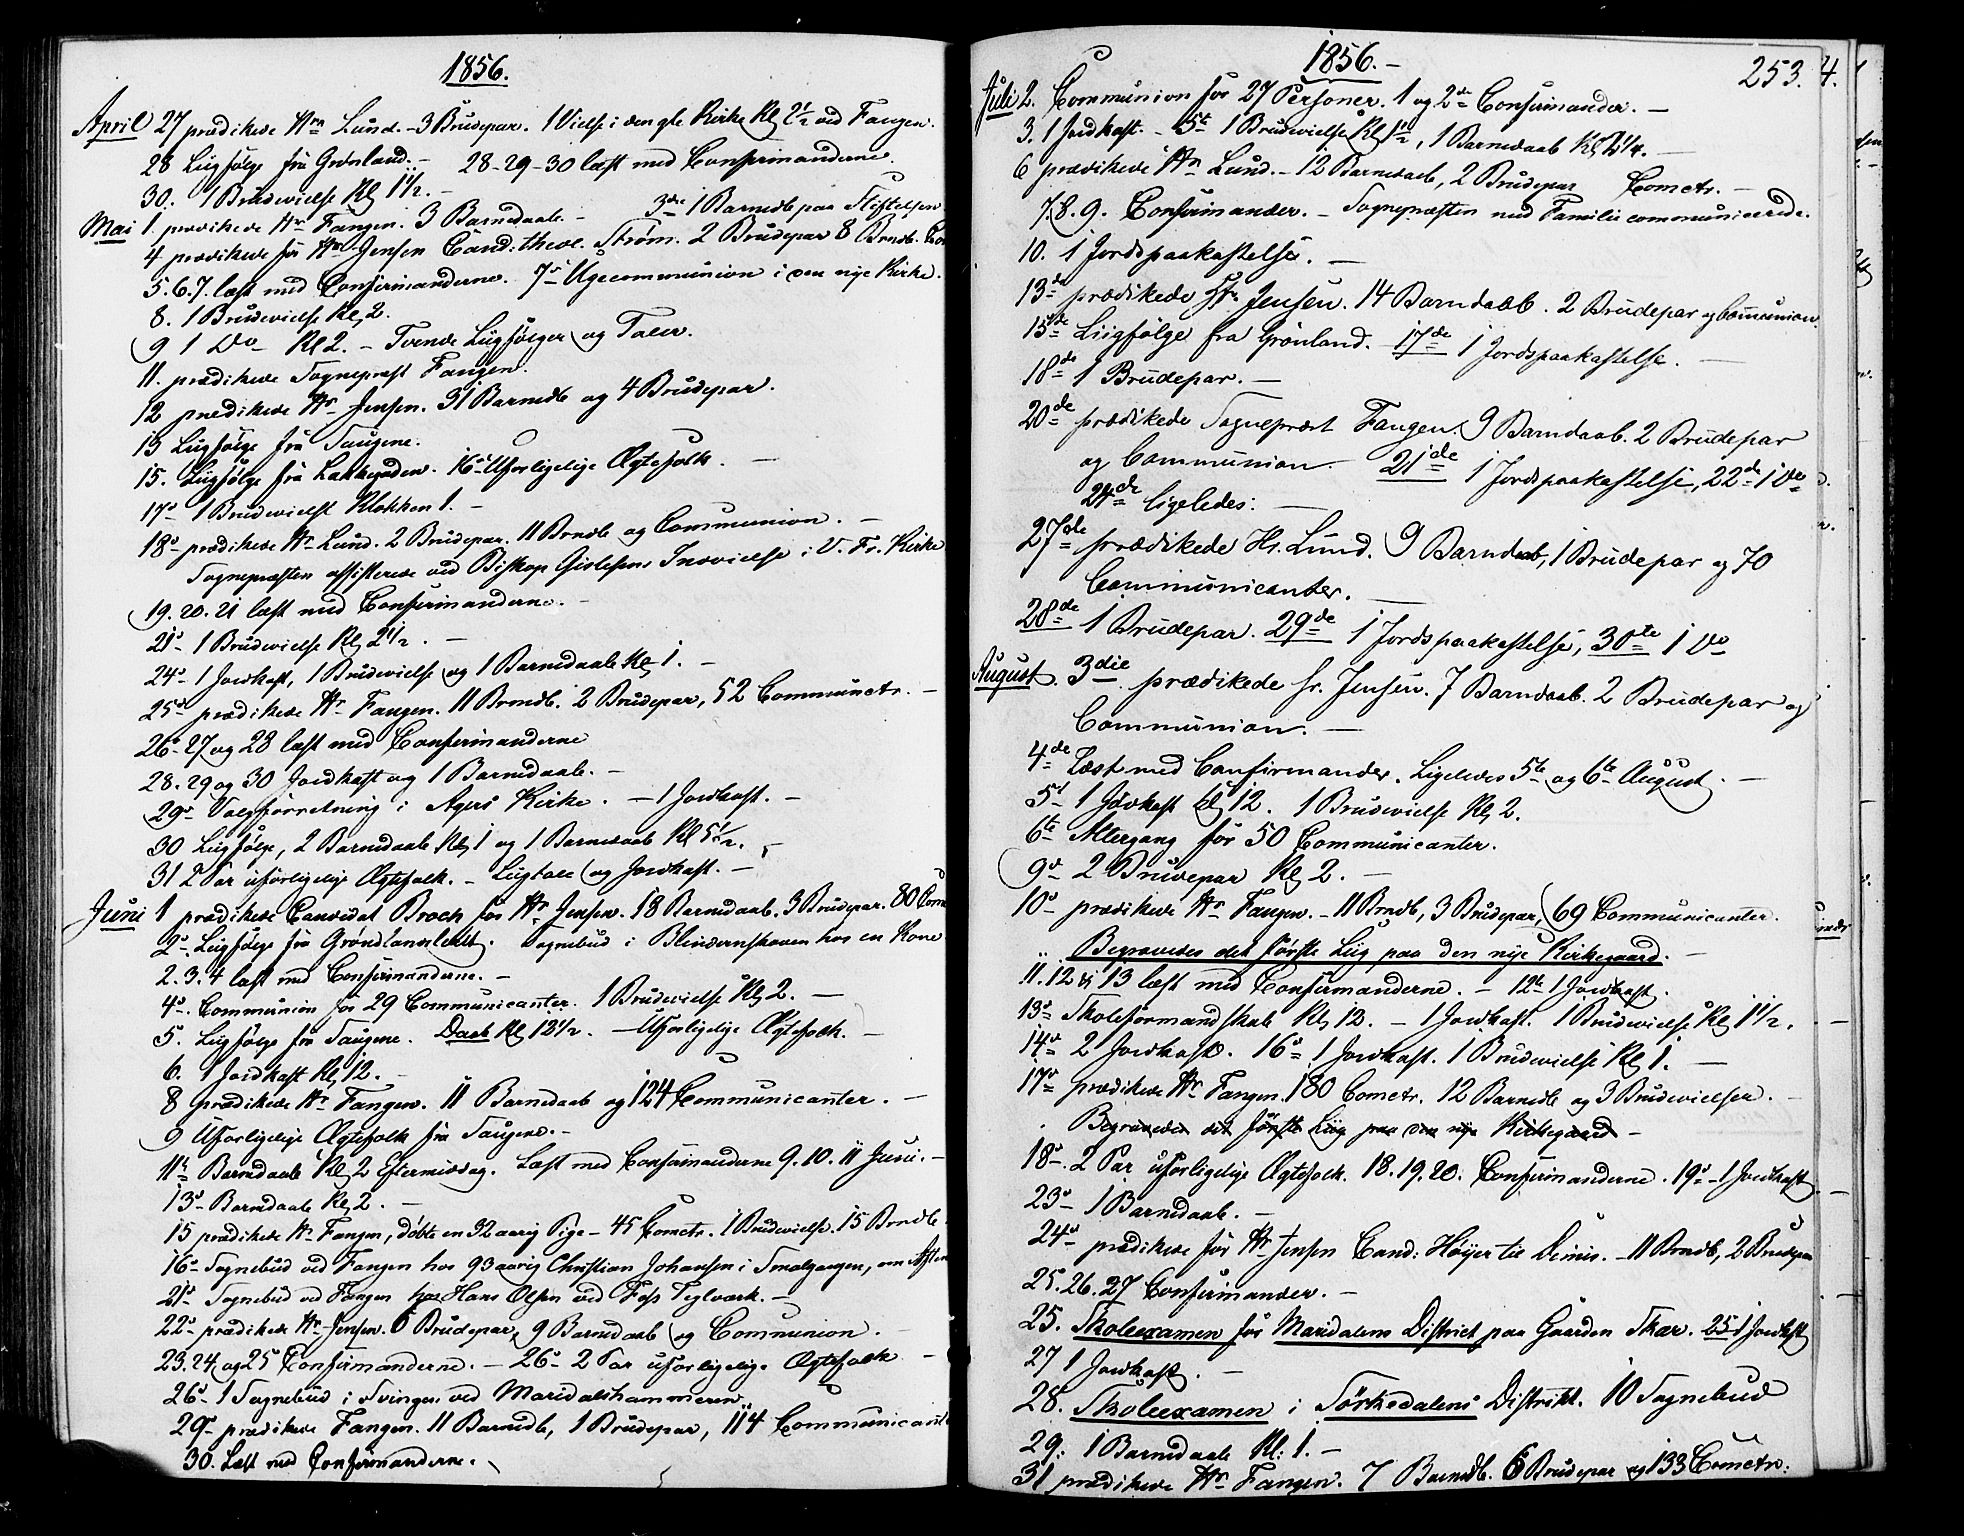 1856.
April 27 prædikede Hr. Lund. - 3 Brudepar. 1 Vielse i den gle Kirke Kl 2½ ved Fangen.
28 Liigfølge fra Grønland. - 28-29-30 læst med Confirmanderne.
30. 1 Brudevielse Kl 1½. -
Mai 1. prædikede Hr Fangen. 3 Barnedaab. - 3die 1 Barnedb paa Stiftelsen
4 prædikede for Hr. Jensen Cand: theol. Strøm. 2 Brudepar 8 Brndb.
5. 6. 7. læst med Confirmanderne. 7d Ugecommunion i den nye Kirke.
8. 1 Brudevielse Kl 2.
9 1 Do Kl 2. - Tvende Liigfølger og Taler.
11. prædikede Sognepræst Fangen.
12 prædikede Hr Jensen. 31 Barnedb og 4 Brudepar.
13 Liigfølge fra Saugene.
15. Liigfølge fra Lakkegaden. 16d Uforligelige Ægtefolk. -
17d 1 Brudevielse Klokken 1. -
18d prædikede Hr Lund. 2 Brudepar. 11 Brndb og Communion. -
Sognepræsten assisterede ved Biskop Gislesens Indvielse i V. Fr. Kirke
19. 20. 21 læst med Confirmanderne. -
21d 1 Brudevielse Kl 2½. -
24d 1 Jordkast, 1 Brudevielse og 1 Barnedaab Kl 1. -
25d prædikede Hr Fangen. 11 Brndb. 2 Brudepar, 52 Communctr. -
26-27 og 28 læst med Confirmanderne
28. 29 og 30 Jordkast og 1 Barnedaab. -
29d Valgforretning i Agers Kirke. - 1 Jordkast. -
30 Liigfølge, 2 Barnedaab Kl 1 og 1 Barnedaab Kl 5½.
31 2 Par uforligelige Ægtefolk. - Liigtale og Jordkast. -
Juni 1 prædikede Candidat Broch for Hr Jensen. 18 Barnedaab. 3 Brudepar. 80
2d Liigfølge fra Grønlandsleret. Sognebud i Blindernshaven hos en Kone
2. 3. 4 læst med Confirmanderne. -
4d Communion for 29 Communicanter. 1 Brudevielse Kl 2. -
5. Liigfølge fra Saugene. Daab Kl 12½. - Uforligelige Ægtefolk. -
6. 1 Jordkast Kl 12. -
8 prædikede Hr Fangen. 11 Barnedaab og 124 Communicanter. -
9 Uforligelige Ægtefolk fra Saugene. -
11te Barnedaab Kl 2 Eftermiddag. Læst med Confirmanderne 9. 10. 11 Juni. -
13d Barnedaab Kl 2. -
15 prædikede Hr Fangen, døbte en 32 aarig Pige - 45 Comctr. 1 Brudevielse. 15 Brndb.
16d Sognebud ved Fangen hos 93 aarig Christian Johansen i Smalgangen, om Aften
21d Sognebud ved Fangen hos Hans Olsen ved Foss Teglværk. -
22d prædikede Hr Jensen. 6 Brudepar, 9 Barnedaab og Communion. -
23. 24. og 25 Confirmanderne. - 26d 2 Par uforligelige Ægtefolk -
26d 1 Sognebud i Svingen ved Maridalshammeren.
29d prædikede Fangen. 11 Barnedb, 1 Brudepar, 114 Communicant
30. Læst med Confirmanderne.
1856. -
253.
4.
Juli 2. Communion for 27 Personer. 1 og 2de Confirmander. -
3. 1 Jordkast. - 5t 1 Brudevielse Kl 1½, 1 Barnedaab Kl
6 prædikede Hr Lund. - 12 Barnedaab, 2 Brudepar Comctr. -
7. 8. 9. Confirmander. - Sognepræsten med Familie communicerede.
10. 1 Jordspaakastelse. -
13de prædikede Hr. Jensen. 14 Barndaab. 2 Brudepar og Communion.
15de Liigfølge fra Grønland. 17de 1 Jordspaakastelse. -
18de 1 Brudepar. -
20de prædikede Sognepræst Fangen. 9 Barndaab. 2 Brudepar
og Communion. 21de 1 Jordspaakastelse, 22de 1 do
24de ligeledes: -
27de prædikede Hr. Lund. 9 Barndaab, 1 Brudepar og 70
Communicanter. -
28de 1 Brudepar. 29de 1 Jordspaakastelse, 30te 1 do
August. 3die prædikede hr. Jensen. 7 Barndaab. 2 Brudepar og
Communion. -
4de Læst med Confirmander. Ligeledes 5te og 6te August. -
5t 1 Jordkast Kl 12. 1 Brudevielse Kl 2.
6te Altergang for 50 Communicanter.
9d 2 Brudepar Kl 2. -
10d prædikede Hr Fangen. - 11 Brndb, 3 Brudepar, 69 Communicanter.
" Begravedes det første Liig paa den nye Kirkegaard. -
11. 12 & 13 læst med Confirmanderne. - 12te 1 Jordkast.
13d Skoleformandskab Kl 12. - 1 Jordkast. 1 Brudevielse Kl 1½. -
14d 2 Jordkast. 16d 1 Jordkast. 1 Brudevielse Kl 1. -
17d prædikede Hr Fangen. 180 Comctr. 12 Barnedb og 3 Brudevielser. -
Begravedes det første Liig paa den nye Kirkegaard -
18d 2 Par uforligelige Ægtefolk. 18. 19. 20. Confirmanderne. 19d 1 Jordkast. -
23d 1 Barnedaab. -
24d prædikede for Hr Jensen Cand: Höyer til Dimis. - 11 Brndb, 2 Brudepar
25. 26. 27 Confirmander. -
25. Skoleexamen for Maridalens District paa Gaarden Skar. 25d 1 Jordkast
27 1 Jordkast. -
28. Skoleexamen i Sørkedalens Distrikt. 10 Sognebud
29: 1 Barnedaab Kl: 1. -
31 prædikede Hr Fangen. 7 Barnedb. 6 Brudepar og 133 Comctr: